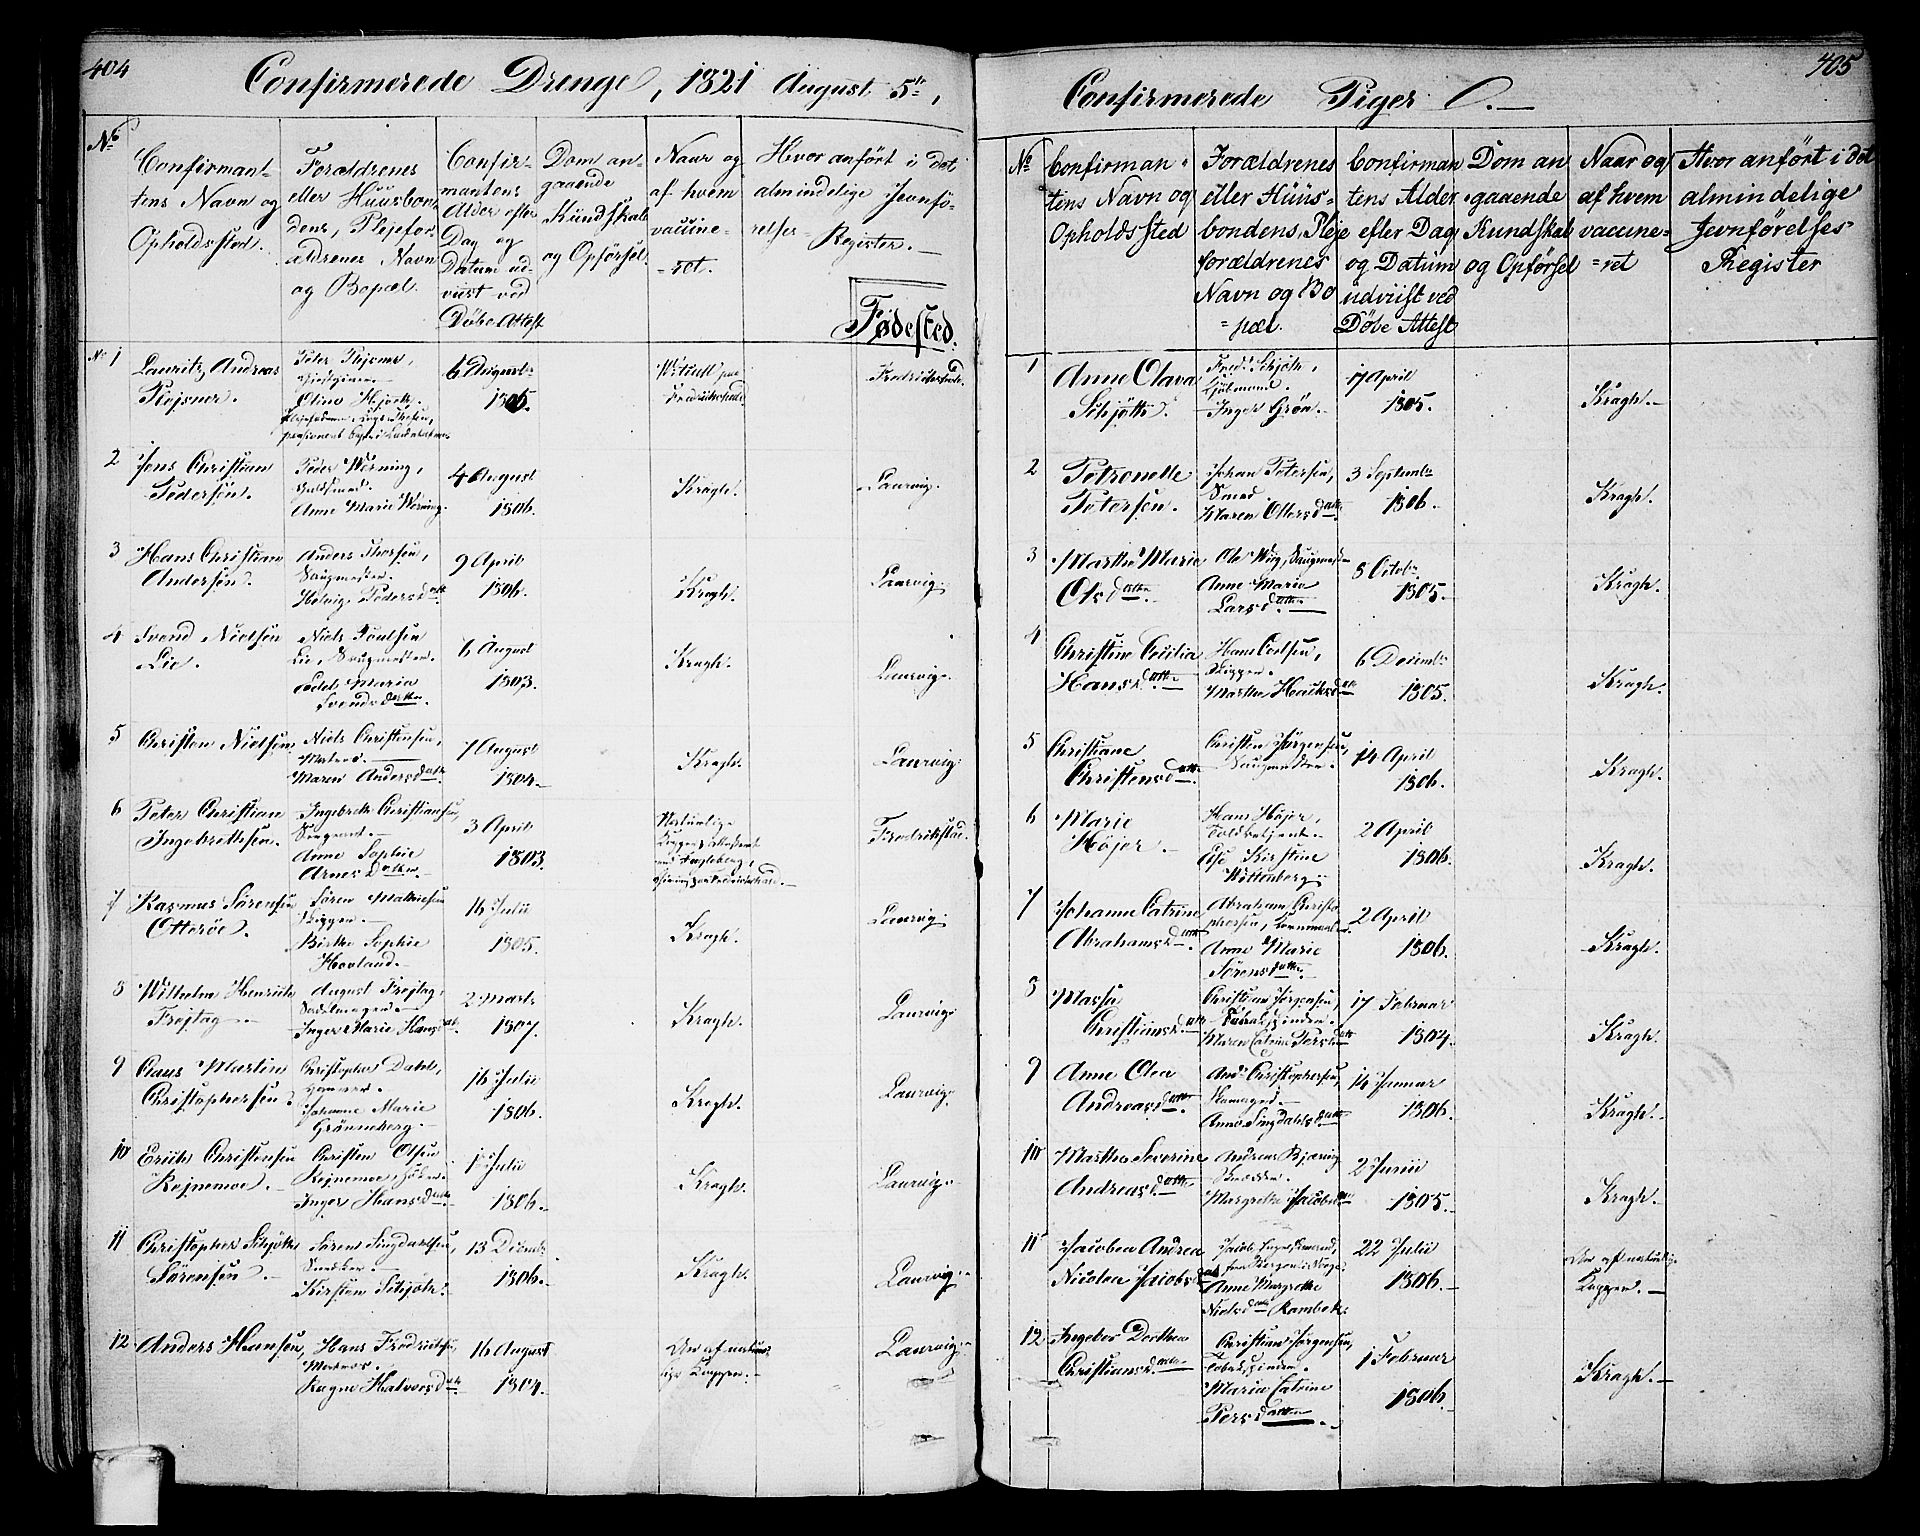 404
Confirmerede Drenge, 1821 August 5te,
No
Confirmantens Navn og Opholdssted.
Forældrenes eller Huusbondens, Plejeforældrenes Navn og Bopæl.
Confirmantens Alder efter Dag og Datum udviist ved Døbe Attest
Dom angaaende Kundskab og Opførsel.
Naar og af hvem vaccineret.
Hvor anført i det almindelige Jevnførelses Register.
Fødested.
No 1
Lauritz Andreas
Plejsner.
Peter Plejsner,
6 August
1805.
Fredrikshald
2
Jens Christian
Pedersen.
Peder Werning,
Guldsmed.
Anne Marie Werning.
4 August
1806.
Kragh.
Laurvig.
3
Hans Christian
Andersen.
Anders Thorsen,
Saugmester.
Helvig Pedersdatter
9 April
1806.
Kragh.
Laurvig.
4
Svend Nielsen
Lie.
Niels Poulsen
Lie, Saugmester.
Maria
Svendsdatter.
6 August
1803.
Kragh.
Laurvig.
5
Christen Nielsen
Niels Christensen,
Matros.
Maren Andersdatter
7 August
1804.
Kragh.
Laurvig.
6
Peter Christian
Ingebrethsen.
Ingebreth Christiansen,
Sergeant.
Anne Sophie
Arnesdatter.
3 April
1803.
Naturlige
Kopper
Fredrikstad.
7
Rasmus Sørensen
Otterøe.
Søren Mathiesen
Skipper.
Birthe Sophie
Hovland.
16 Julii
1805.
Kragh.
Laurvig.
8
Wilhelm Henrich
Frejtag.
August Frejtag,
Sadelmager.
Inger Marie Hansdatter
2 Marts
1807.
Kragh.
Laurvig.
9
Claus Martin
Christophersen.
Christopher Dahl,
Johanne Marie
Grönneberg.
16 Julii
1806.
Kragh.
Laurvig.
10
Erich Christensen
Rejnemoe.
Christen Olsen
Rejnemoe,
Inger Hansdatter.
1 Julii
1806.
Kragh.
Laurvig.
11
Christopher Schjøth
Sørensen.
Søren Lingdahlsen,
Snedker.
Kirsten Schjøth.
13 Decemb.
1806.
Kragh.
Laurvig.
12
Anders Hansen,
Hans Fredrichsen,
Matros.
Ragne Halvorsdatter
16 August
1804.
Ar af naturlige
Kopper.
Laurvig.
405
Confirmerede Piger
No
Confirmantens Navn og Opholdssted
Forældrenes eller Huusbondens, Plejeforældrenes Navn og Bopæl.
Confirmantens Alder efter Dag og Datum udviist ved Døbe Attest
Dom angaaende Kundskab og Opførsel
Naar og af hvem vaccineret
Hvor anført i det almindelige Jevnførelses Register
1
Anne Olava
Schjøtt.
Fred. Schjøth,
Kjøbmand.
Inger Grøn.
17 April
1805.
Kragh.
2
Petronelle
Petersen.
Johan Petersen,
Smed
Maren Ottersdatter
3 Septemb.
1806.
Kragh.
3
Marthe Marie
Olsdatter.
Ole Wiig, Saugmester
Anne Maria
Larsdatter.
8 Octob.
1805.
Kragh.
4
Christine Cecilia
Hansdatter.
Hans Coelsen,
Skipper.
Marthe
6 Decemb.
1805.
Kragh.
5
Christiane
Christensdatter
Christen Jørgensen,
Saugmester.
14 April
1806.
Kragh.
6
Marie
Højer.
Hans Højer,
Toldbetjent.
Else Kirstine
Wittenberg.
2 April
1806.
Kragh.
7
Johanne Catrine
Abrahamsdatter
Abraham Christophersen,
Anne Marie
Sørensdatter.
2 April
1806.
Kragh.
8
Massa
Christiansdatter
Christian Jørgensen,
Tobakspinder.
Maren Catrine Persdatter
17 Februar
1804.
Kragh.
9
Anne Olea
Andreasdatter.
And. Christophersen,
Anne Lingdahlsdatter.
14 Januar
1806.
Kragh.
10
Marthe Severine
Andreasdatter.
Andreas Bjærring
Snedker.
Margrethe Jacobsdatter
2 Junii
1805.
Kragh.
11
Jacobea Andrea
Nicolea Jacobsdatter
Anne Margrethe
Nielsdatter Rambek.
22 Julii
1806.
Ar af naturlige
Kopper.
12
Ingebor Dorthea
Christiansdatter.
Christian Jørgensen,
Tobakspinder.
Maria Catrine
Persdatter.
1 Februar
1806.
Kragh.